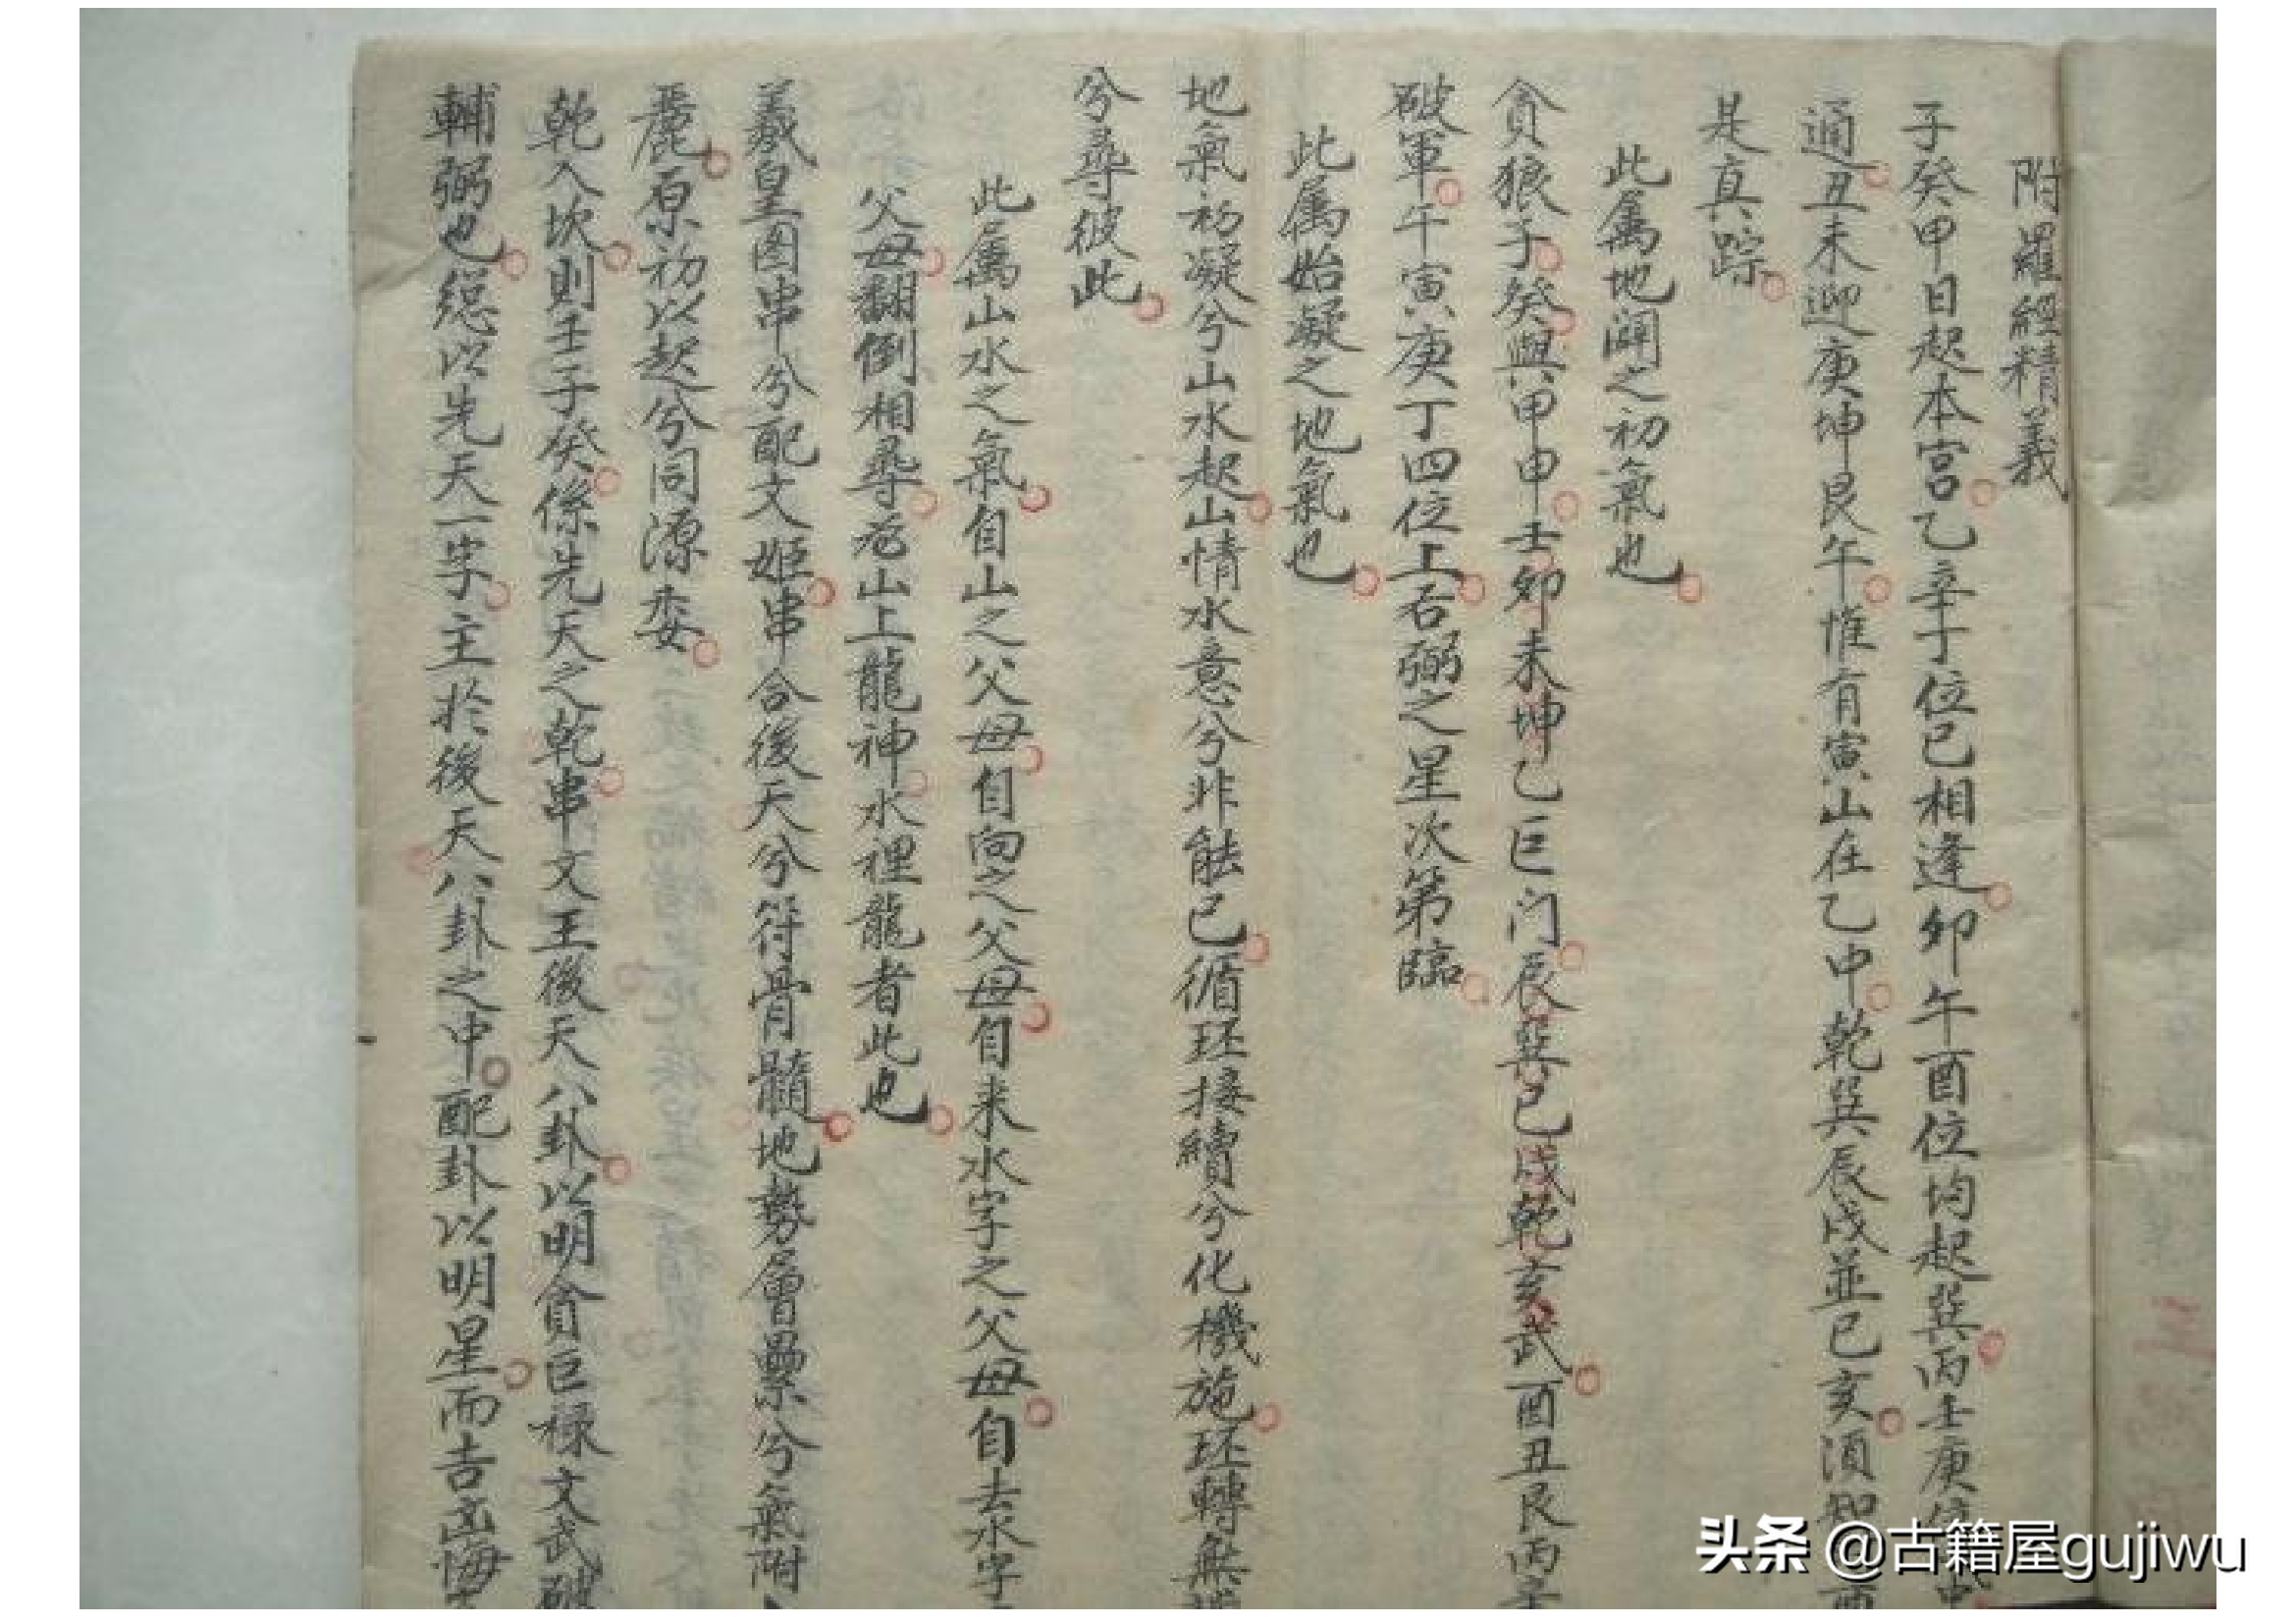 附羅經精義
子癸甲日起本宮乙辛丁位已相逢卯午酉位均起巽丙壬庚位
通丑未迎庚坤艮午惟有寅山在乙中乾巽辰戌並已亥須知
是真踪
此属地闢之初氣也
貪狼子癸與甲申壬卯未坤乙巨门辰巽已戌乾亥武酉丑艮丙
破軍午寅庚丁四位上右弼之星次第臨
此属始凝之地氣也
地氣初凝兮山水起山情水意兮非能已循环接續兮化機施环轉無
兮尋彼此
此属山水之氣自山之父母自向之父母自来水字之父母自去水字
父母翻倒相尋老山上龍神水裡龍者此也
羲皇图串兮配文姬串合後天兮符骨髓地勢層曡兮氣附
麗原初以起兮同源委
乾入坎則壬子癸係先天之乾串文王後天八卦以明貪巨祿文武破
輔弼也緫以先天一字主於後天八卦之中配卦以明星而吉凶悔
头条 @古籍屋gujiwu